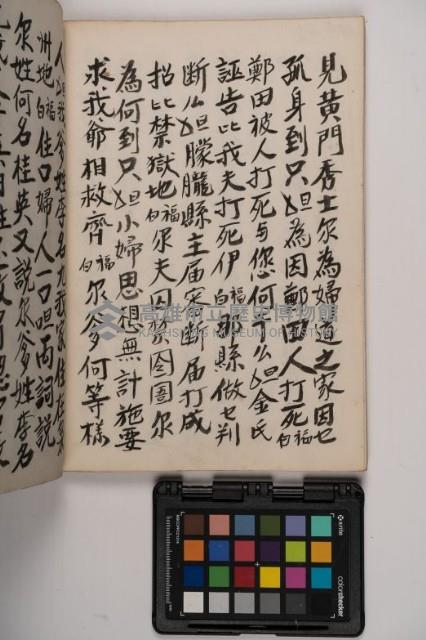 見黃門秀士尔為婦道之家因乜
孤身到只旦為因鄭田人打死白福
鄭田被人打死与您何干么旦金氏
誣告比我夫打死伊白福那縣做乜判
断么旦朦朧縣主屈案断屈打成
招比禁獄地白福尔夫囚禁囹圄尔
為何到只旦小婦思想無計施要
求我爺相救齊白福尔爹何等樣
人旦我爹姓李名九我家住在
洲地白福住口婦人一口呾両詞說
尔姓何名桂英又說尔爹姓李名
高雄市立歷史博物館
KAOHSIUNG MUSEUM OF HISTORY
x-rite
colorchecker